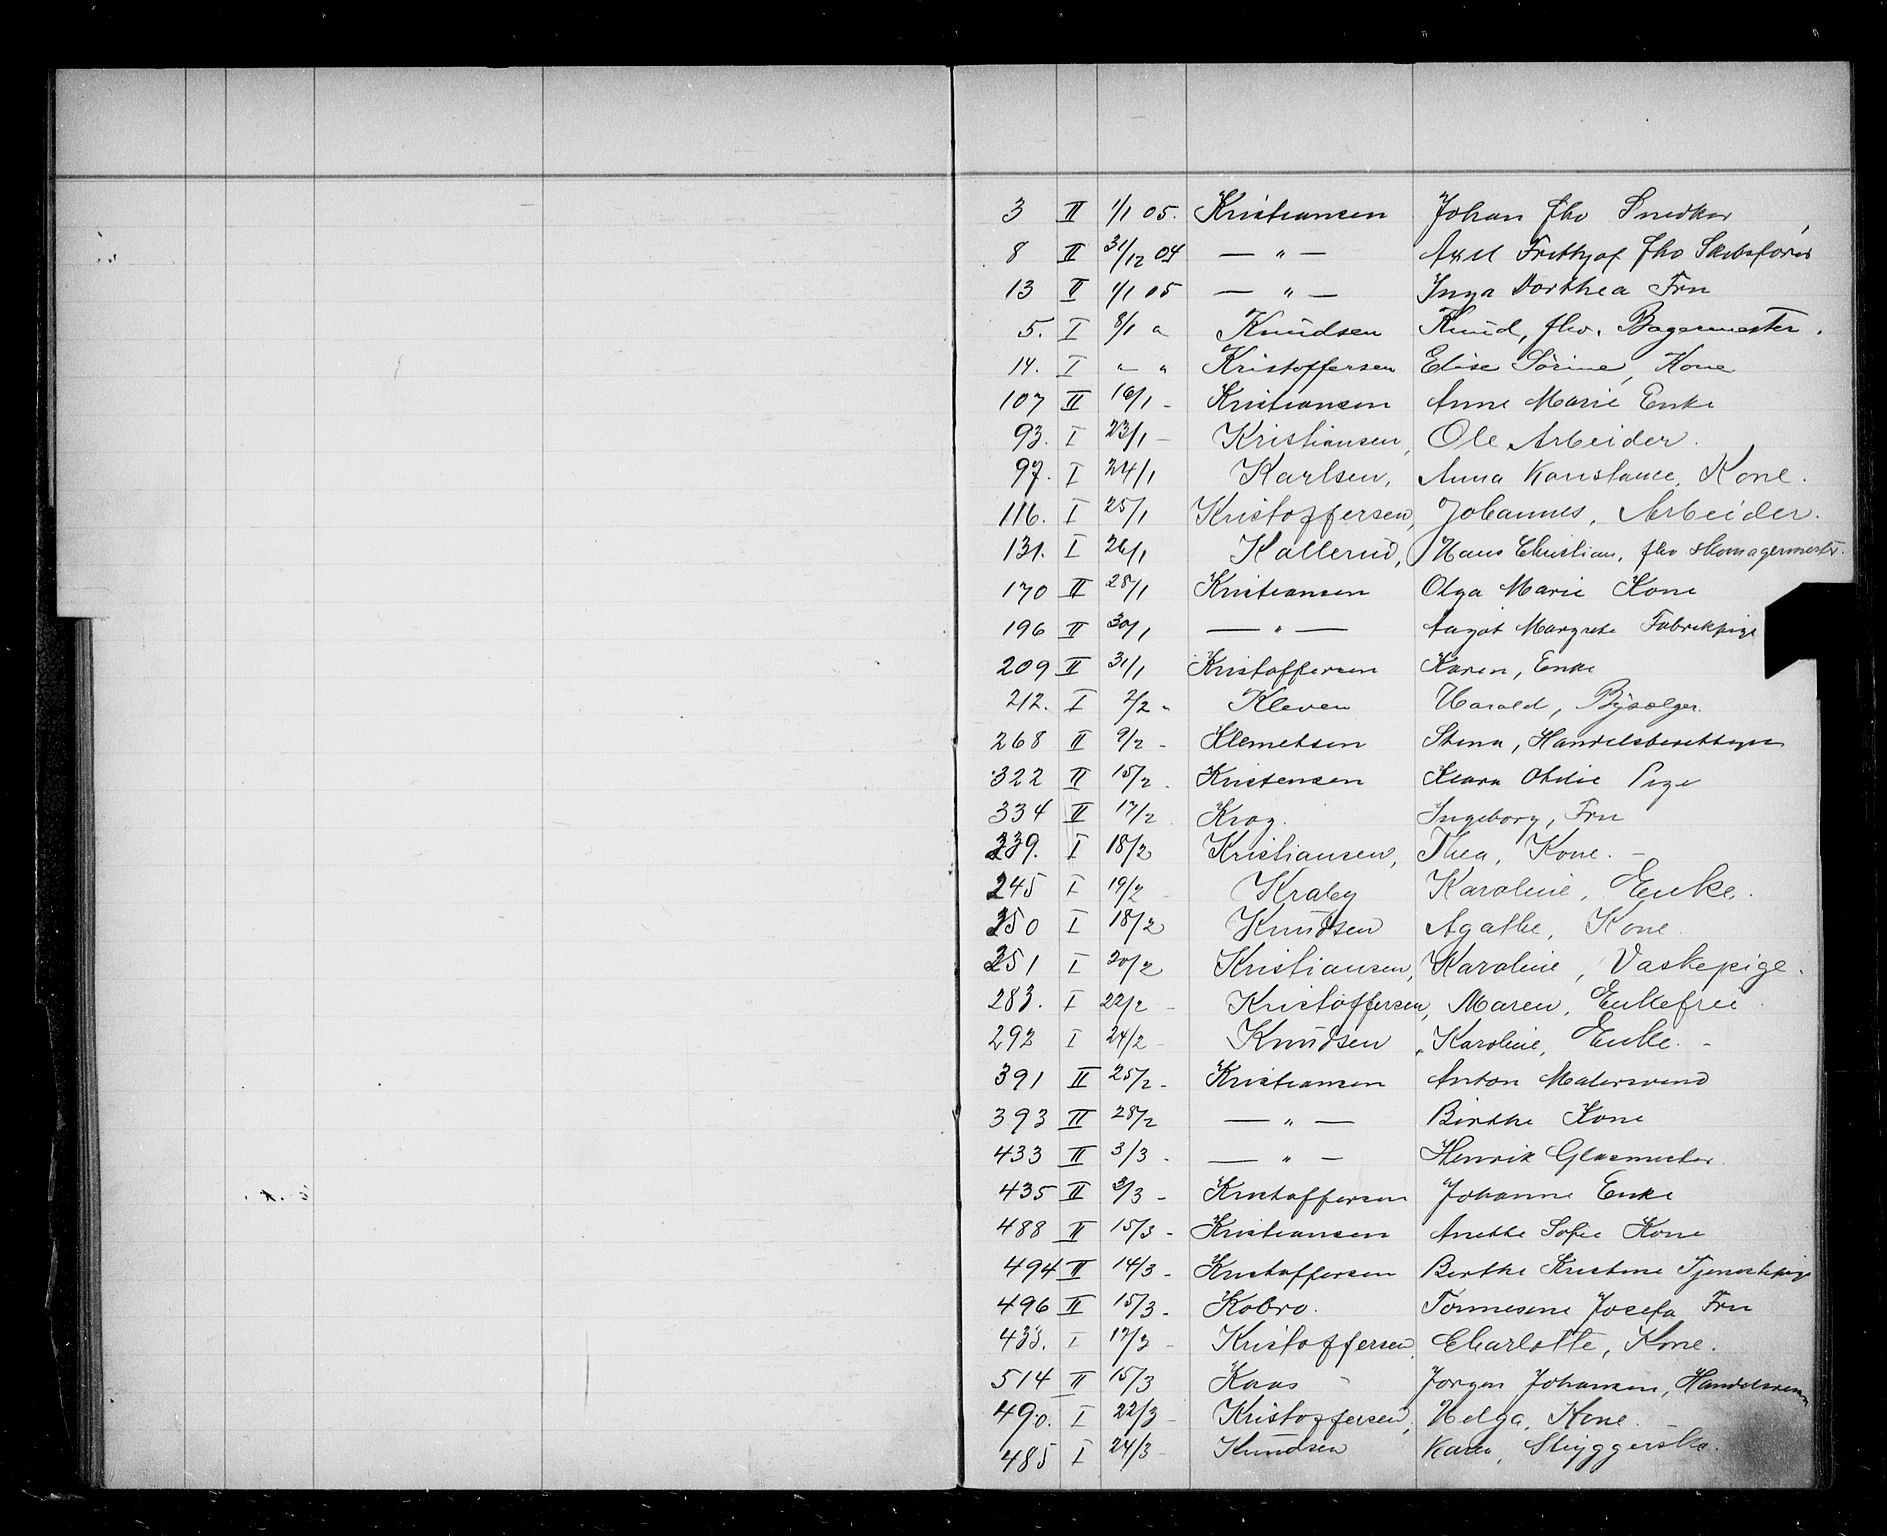 3 II 1/1 05. Kristiansen Johan fhv Snedker
8 II 31/12 04 — " — Axel Frithjof fhv Skibsfører
13 II 1/1 05 — " — Inga Dorthea Fru
5. I 8/1 " Knudsen Knud, fhv. Bagermester.
14. I " " Kristoffersen Elise Sørine, Kone
107 II 16/1 - Kristiansen Anne Marie Enke
93. I 23/1 - Kristiansen, Ole Arbeider.
97. I 24/1 Karlsen, Anna Konstance, Kone.
116. I 25/1 Kristoffersen, Johannes, Arbeider.
131. I 26/1 Kallerud, Hans Christian, fhv skomagermester.
170 II 28/1 Kristiansen Olga Marie Kone
196 II 30/1 — " — Aagot Margrete Fabrikpige
209 II 31/1 Kristoffersen Karen, Enke
212. I 2/2 " Kleven Harald, Bysælger.
268 II 9/2 - Klemetsen Stina, Handelsberettiget
322 II 15/2. Kristensen Klara Otilie Pige
334 II 17/2 Krog. Ingeborg, Fru
339. I 18/2 Kristiansen, Thea, Kone. -
245 I 19/2 - Kraby Karoline, Enke.
250 I 18/2 Knudsen Agathe, Kone.
251 I 20/2 Kristiansen, Karoline, Vaskepige.
283. I 22/2 - Kristoffersen, Maren, Enkefru
292 I 24/2 - Knudsen, Karoline, Enke. -
391 II 25/2. Kristiansen Anton Malersvend
393 II 28/2 — " — Birthe Kone
433 II 3/3 - — " — Henrik Glasmester.
435 II 2/3 - Kristoffersen Johanne Enke
488 II 15/3 - Kristiansen Anette Sofie Kone
494 II 14/3 - Kristoffersen Berthe Kristine Tjenestepige
496 II 15/3 - Kobro. Tonnesine Josefa Fru
433. I 17/3 - Kristoffersen, Charlotte, Kone.
514 II 15/3 Kaas Jørgen Johansen, Handelsmann
490. I 22/3 - Kristoffersen, Helga, Kone.
485 I 24/3 - Knudsen Karen,